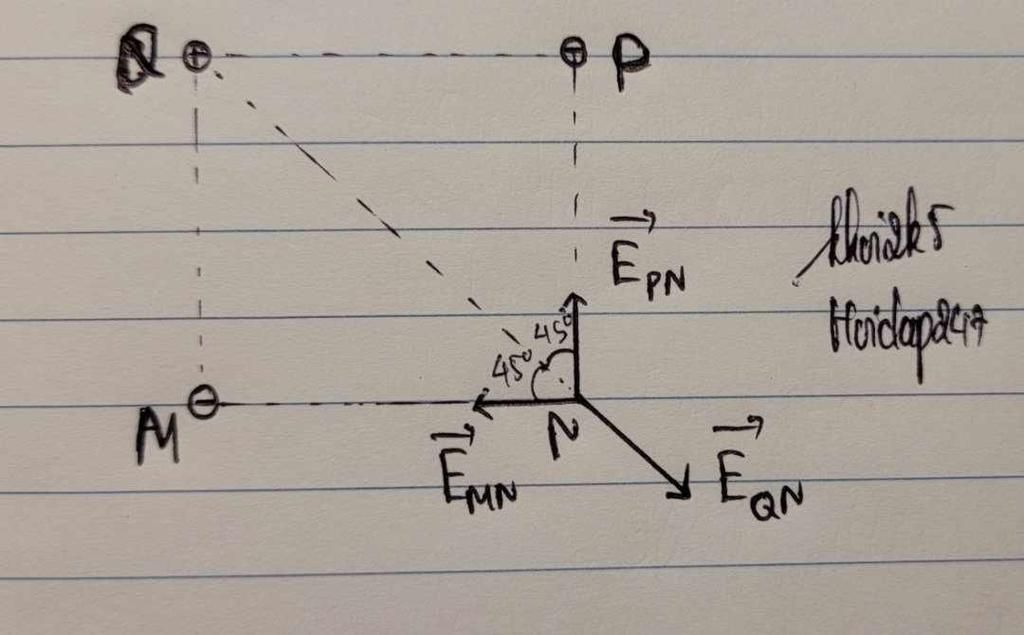 Q ⊕ ⊕ P
khoi2k5
Hoidap247
E⃗PN
45°
45°
M ⊖ N
E⃗MN
E⃗QN